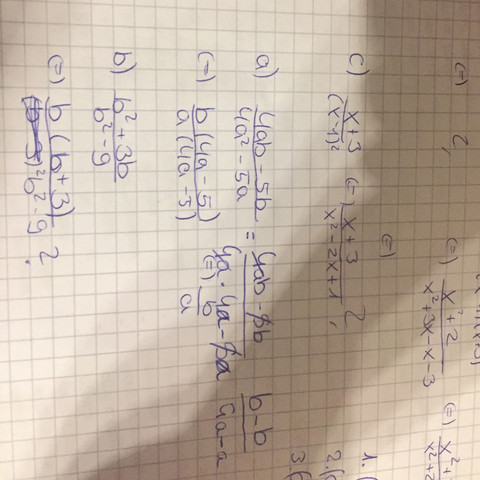 (=) 2,
(=) x²+2 / x²+3x-x-3 (=)
c) x+3 / (x-1)² (=) x+3 / x²-2x+1 2,
(=)
a) 4ab-5b / 4a²-5a = 4ab-5b / 4a·4a-5a b-b / 4a-a
(=) b(4a-5) / a(4a-5) (=) b / a
b) b²+3b / b²-9
(=) b(b+3) / b²-9 2.
1. (
2. (
3. (